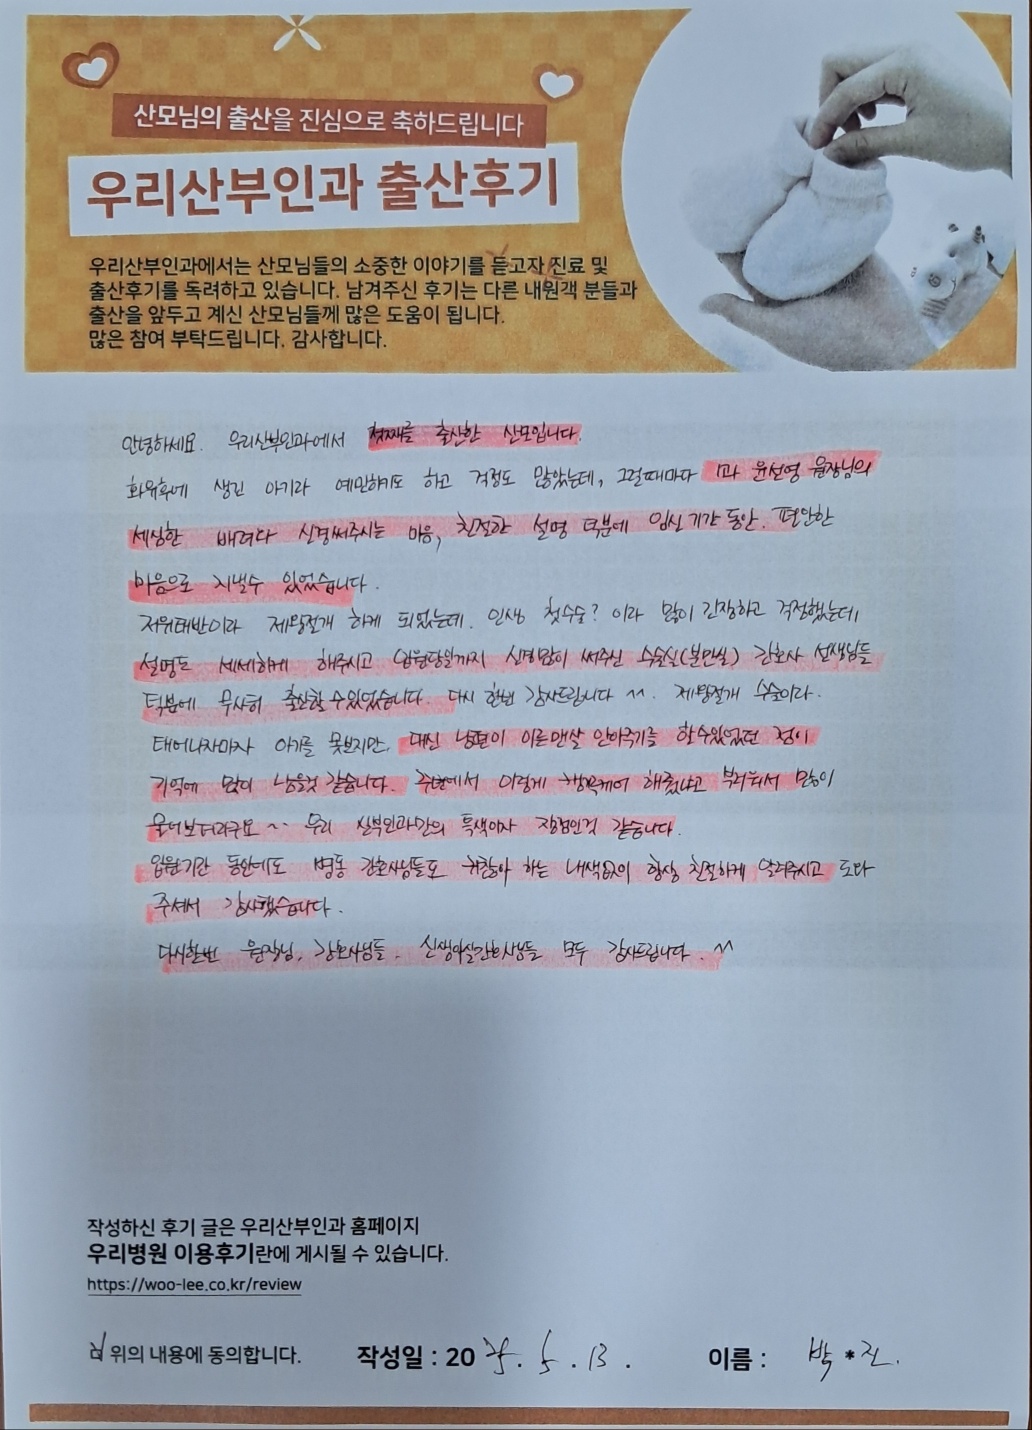 산모님의 출산을 진심으로 축하드립니다
우리산부인과 출산후기
우리산부인과에서는 산모님들의 소중한 이야기를 듣고자 진료 및
출산후기를 독려하고 있습니다. 남겨주신 후기는 다른 내원객 분들과
출산을 앞두고 계신 산모님들께 많은 도움이 됩니다.
많은 참여 부탁드립니다. 감사합니다.
안녕하세요. 우리산부인과에서 첫째를 출산한 산모입니다.
화유후에 생긴 아기라 예민하기도 하고 걱정도 많았는데, 그럴때마다 1과 윤선영 원장님의
세심한 배려와 신경써주시는 마음, 친절한 설명 덕분에 임신기간 동안. 편안한
마음으로 지낼수 있었습니다.
저위태반이라 제왕절개 하게 되었는데. 인생 첫수술? 이라 많이 긴장하고 걱정했는데,
설명도 세세하게 해주시고 입원당일까지 신경많이 써주신 수술실(분만실) 간호사 선생님들
덕분에 무사히 출산할 수 있었습니다. 다시 한번 감사드립니다 ^^. 제왕절개 수술이라.
태어나자마자 아기를 못보지만, 대신 남편이 이른맨살 안아주기를 할수있었던 점이
기억에 많이 남을것 같습니다. 주변에서 이렇게 해줬냐고 부러워서 많이
물어보더라구요 ~~ 우리 산부인과만의 특색이자 장점인것 같습니다.
입원기간 동안에도 병동 간호사님들도 귀찮아 하는 내색없이 항상 친절하게 알려주시고 도와
주셔서 감사했습니다.
다시한번 원장님, 간호사님들, 신생아실간호사님들 모두 감사드립니다. ^^
작성하신 후기 글은 우리산부인과 홈페이지
우리병원 이용후기란에 게시될 수 있습니다.
https://woo-lee.co.kr/review
위의 내용에 동의합니다. 작성일 : 2025. 5. 13. 이름 : 박*진.